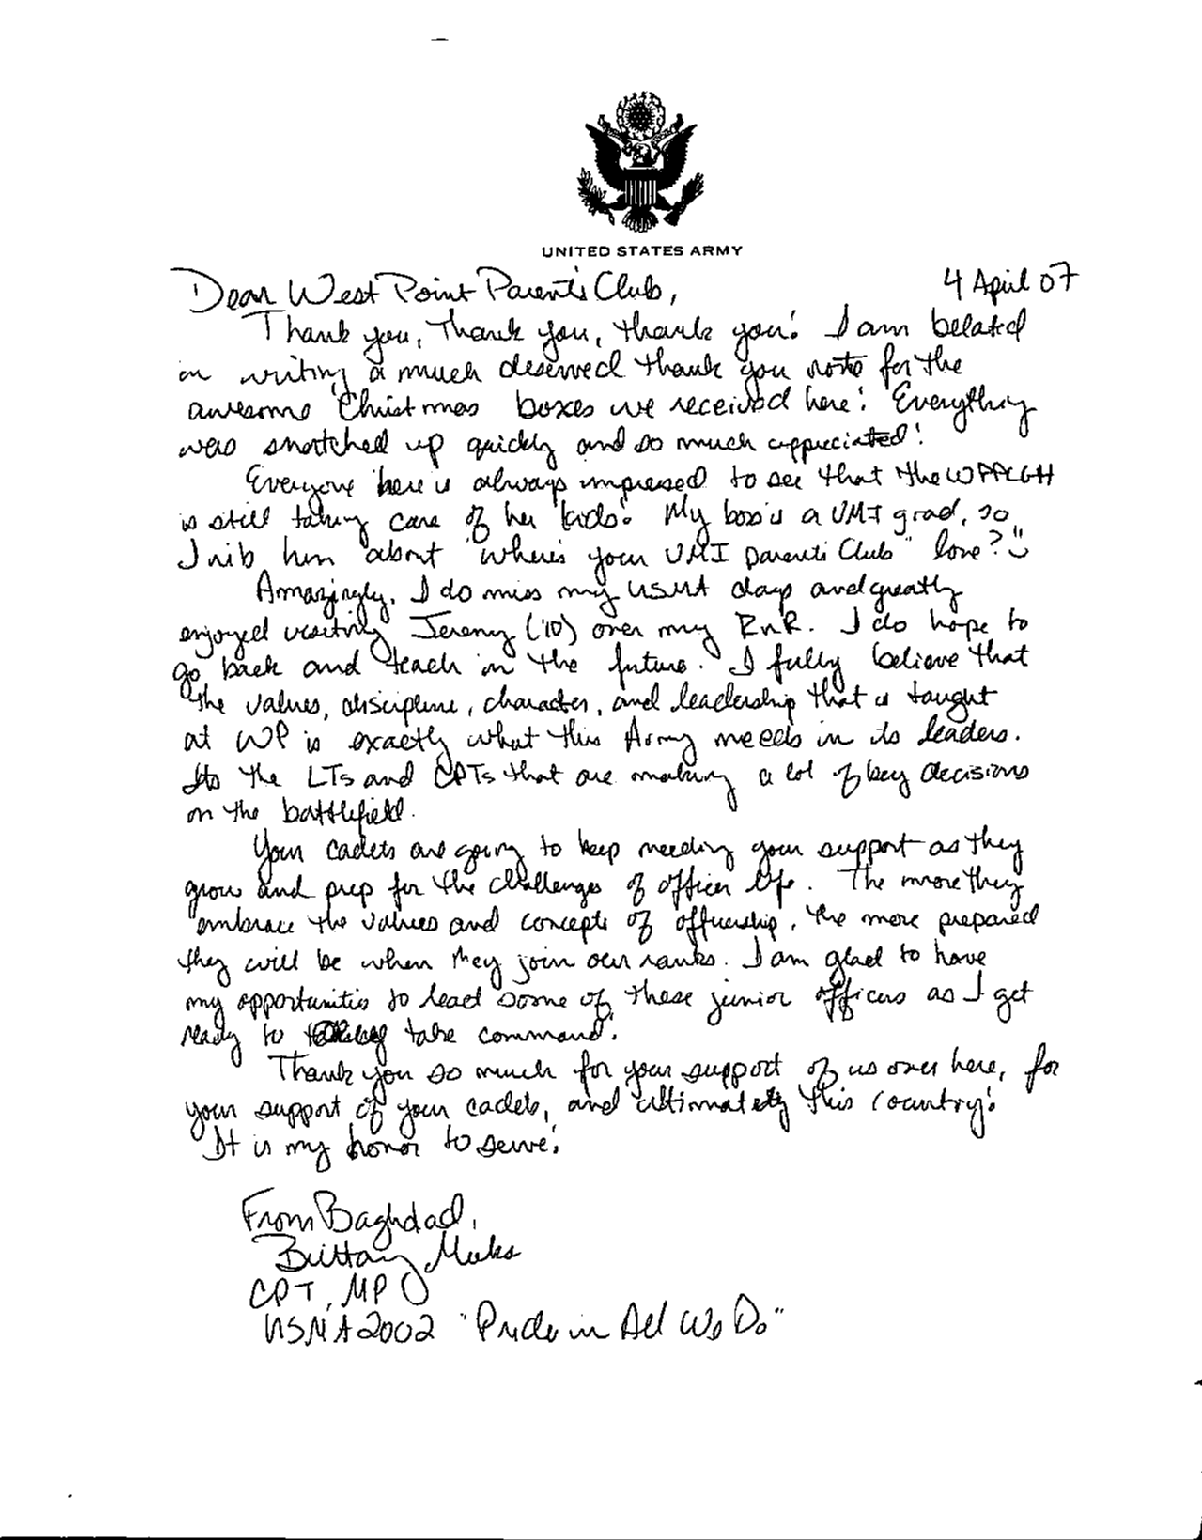 UNITED STATES ARMY
4 April 07
Dear West Point Parent's Club,
Thank you, Thank you, thank you! I am belated
in writing a much deserved thank you note for the
awesome Christmas boxes we received here! Everything
was snatched up quickly and so much appreciated!
Everyone here is always impressed to see that the
is still taking care of her "kids". My boss is a VMI grad, so
I rib him about "where's your VMI Parent's Club" love?
Amazingly, I do miss my USMA days and greatly
enjoyed visiting Jeremy ('10) over my RnR. I do hope to
go back and teach in the future. I fully believe that
the values, discipline, character, and leadership that is taught
at WP is exactly what this Army needs in its leaders.
Its the LTs and CPTs that are making a lot of key decisions
on the battlefield.
Your cadets are going to keep needing your support as they
grow and prep for the challenges of officer life. The more they
embrace the values and concepts of officership, the more prepared
they will be when they join our ranks. I am glad to have
my opportunities to lead some of these junior officers as I get
ready to take command.
Thank you so much for your support of us over here, for
your support of your cadets, and ultimately this country!
It is my honor to serve!
From Baghdad,
Brittany Meeks
CPT, MP
USMA 2002 "Pride in All We Do"